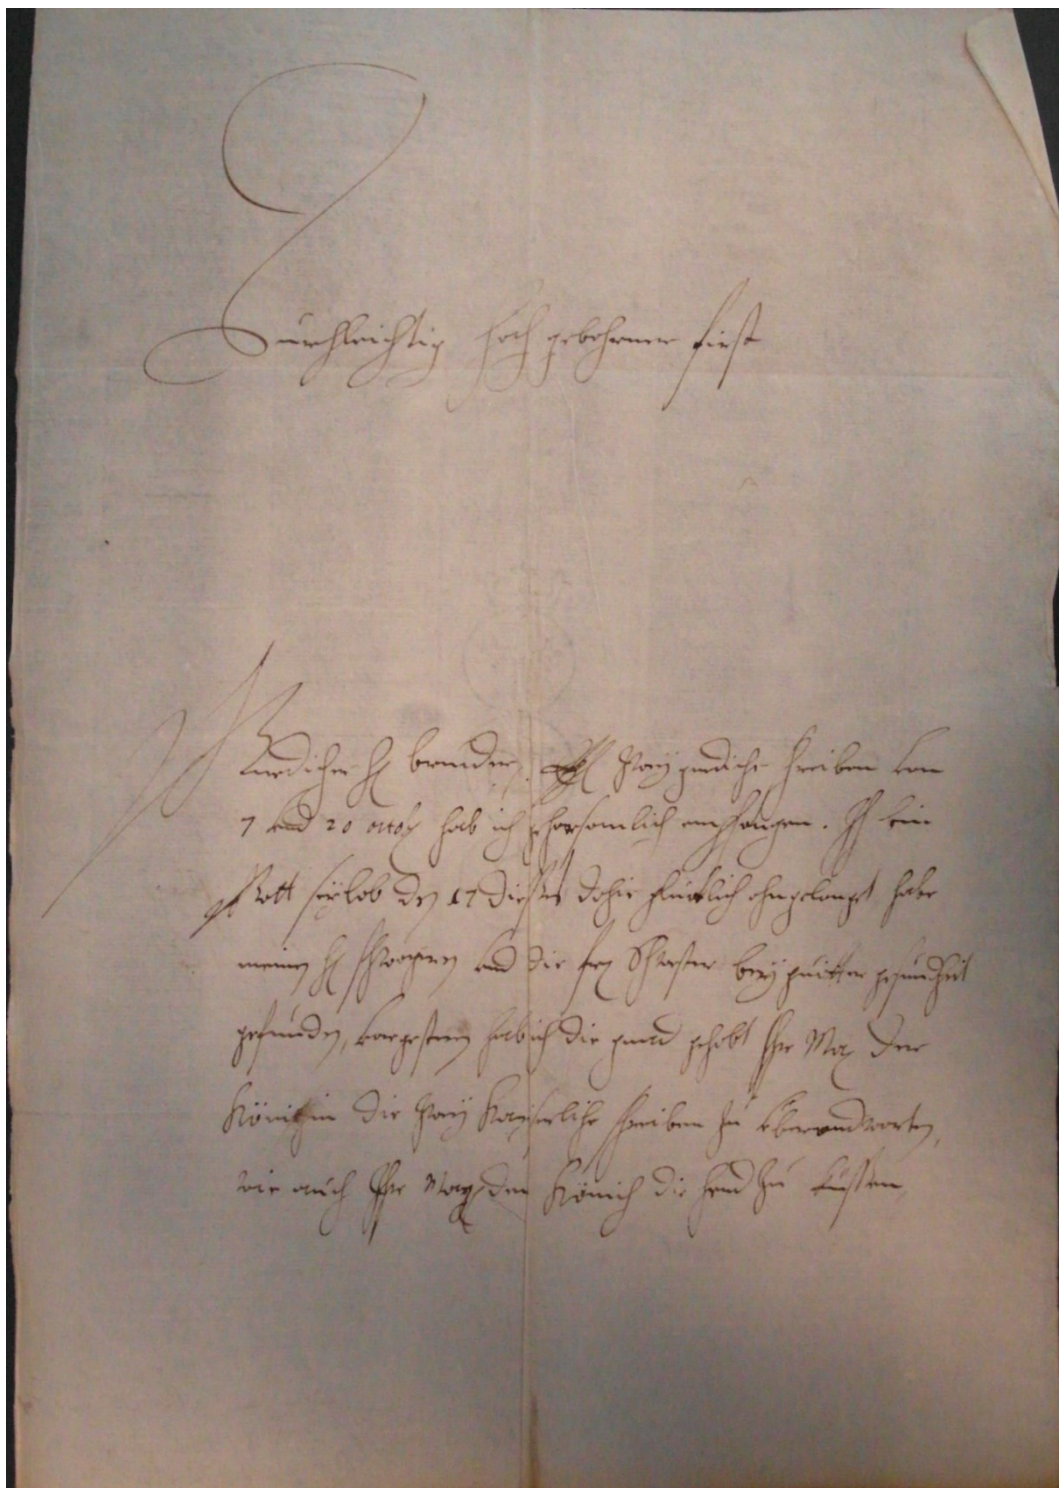 Durchleichtig hoch gebohrner first
bruder gnediche schreiben vom
7 und 20 octob hab ich gehorsomlich empfangen. Ich bin
gott seÿ lob den 17 dieses dohie glücklich ohngelangt habe
meinen H schwagern und die fra schwester beÿ guitter gesundheit
gefunden, vorgestern hab ich die gnad gehobt Ihr Maÿ der
Königin die kaÿserliche schreiben zu überandworten,
wie auch Ihr Maÿ dem Könich die hend zu küssen,